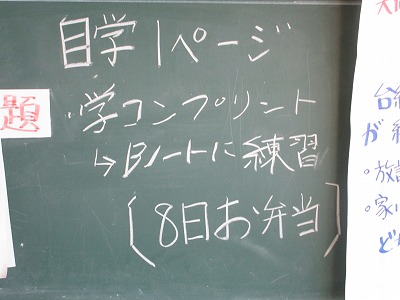 自学1ページ
・学コンプリント
↳Bノートに練習
[8日お弁当]
題
台
が
・放
・家
ど